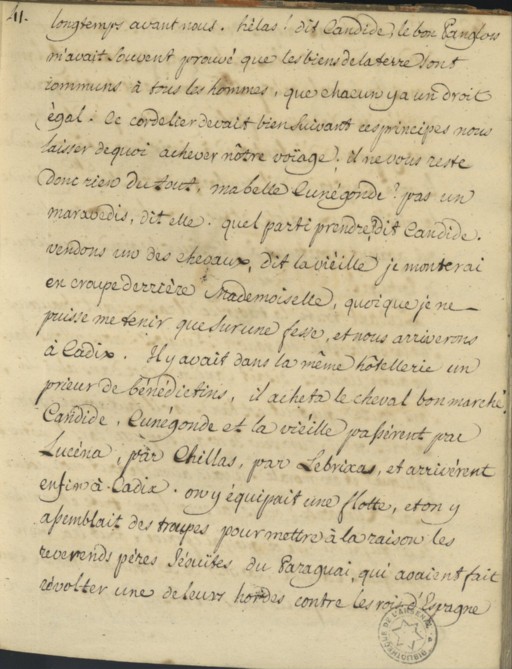 41.
longtemps avant nous. hélas! dit Candide, le bon Pangloss
m'avait souvent prouvé que les biens de la terre sont
communs à tous les hommes, que chacun y a un droit
égal. Ce cordelier devait bien suivant ces principes nous
laisser dequoi achever nôtre voïage. Il ne vous reste
donc rien du tout, ma belle Cunégonde? pas un
maravedis, dit elle. quel parti prendre, dit Candide.
vendons un des chevaux, dit la vieille je monterai
en croupe derrière Mademoiselle, quoique je ne
puisse me tenir que sur une fesse, et nous arriverons
à Cadix. Il y avait dans la même hôtellerie un
prieur de bénédictins, il acheta le cheval bon marché.
Candide, Cunégonde et la vieille passérent par
Lucéna, par Chillas, par Lebrixas, et arrivérent
enfin à Cadix. on y équipait une flotte, et on y
assemblait des troupes pour mettre à la raison les
reverends péres Jésuites du Paraguai, qui avaient fait
révolter une de leurs hordes contre les rois d'Espagne
BIBLIOTHÈQUE DE L'ARSENAL